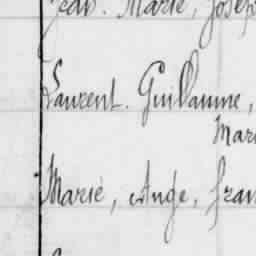 Jean. Marie, Josep
Laurent. Guillaume,
Mari
Marie, Ange, fran